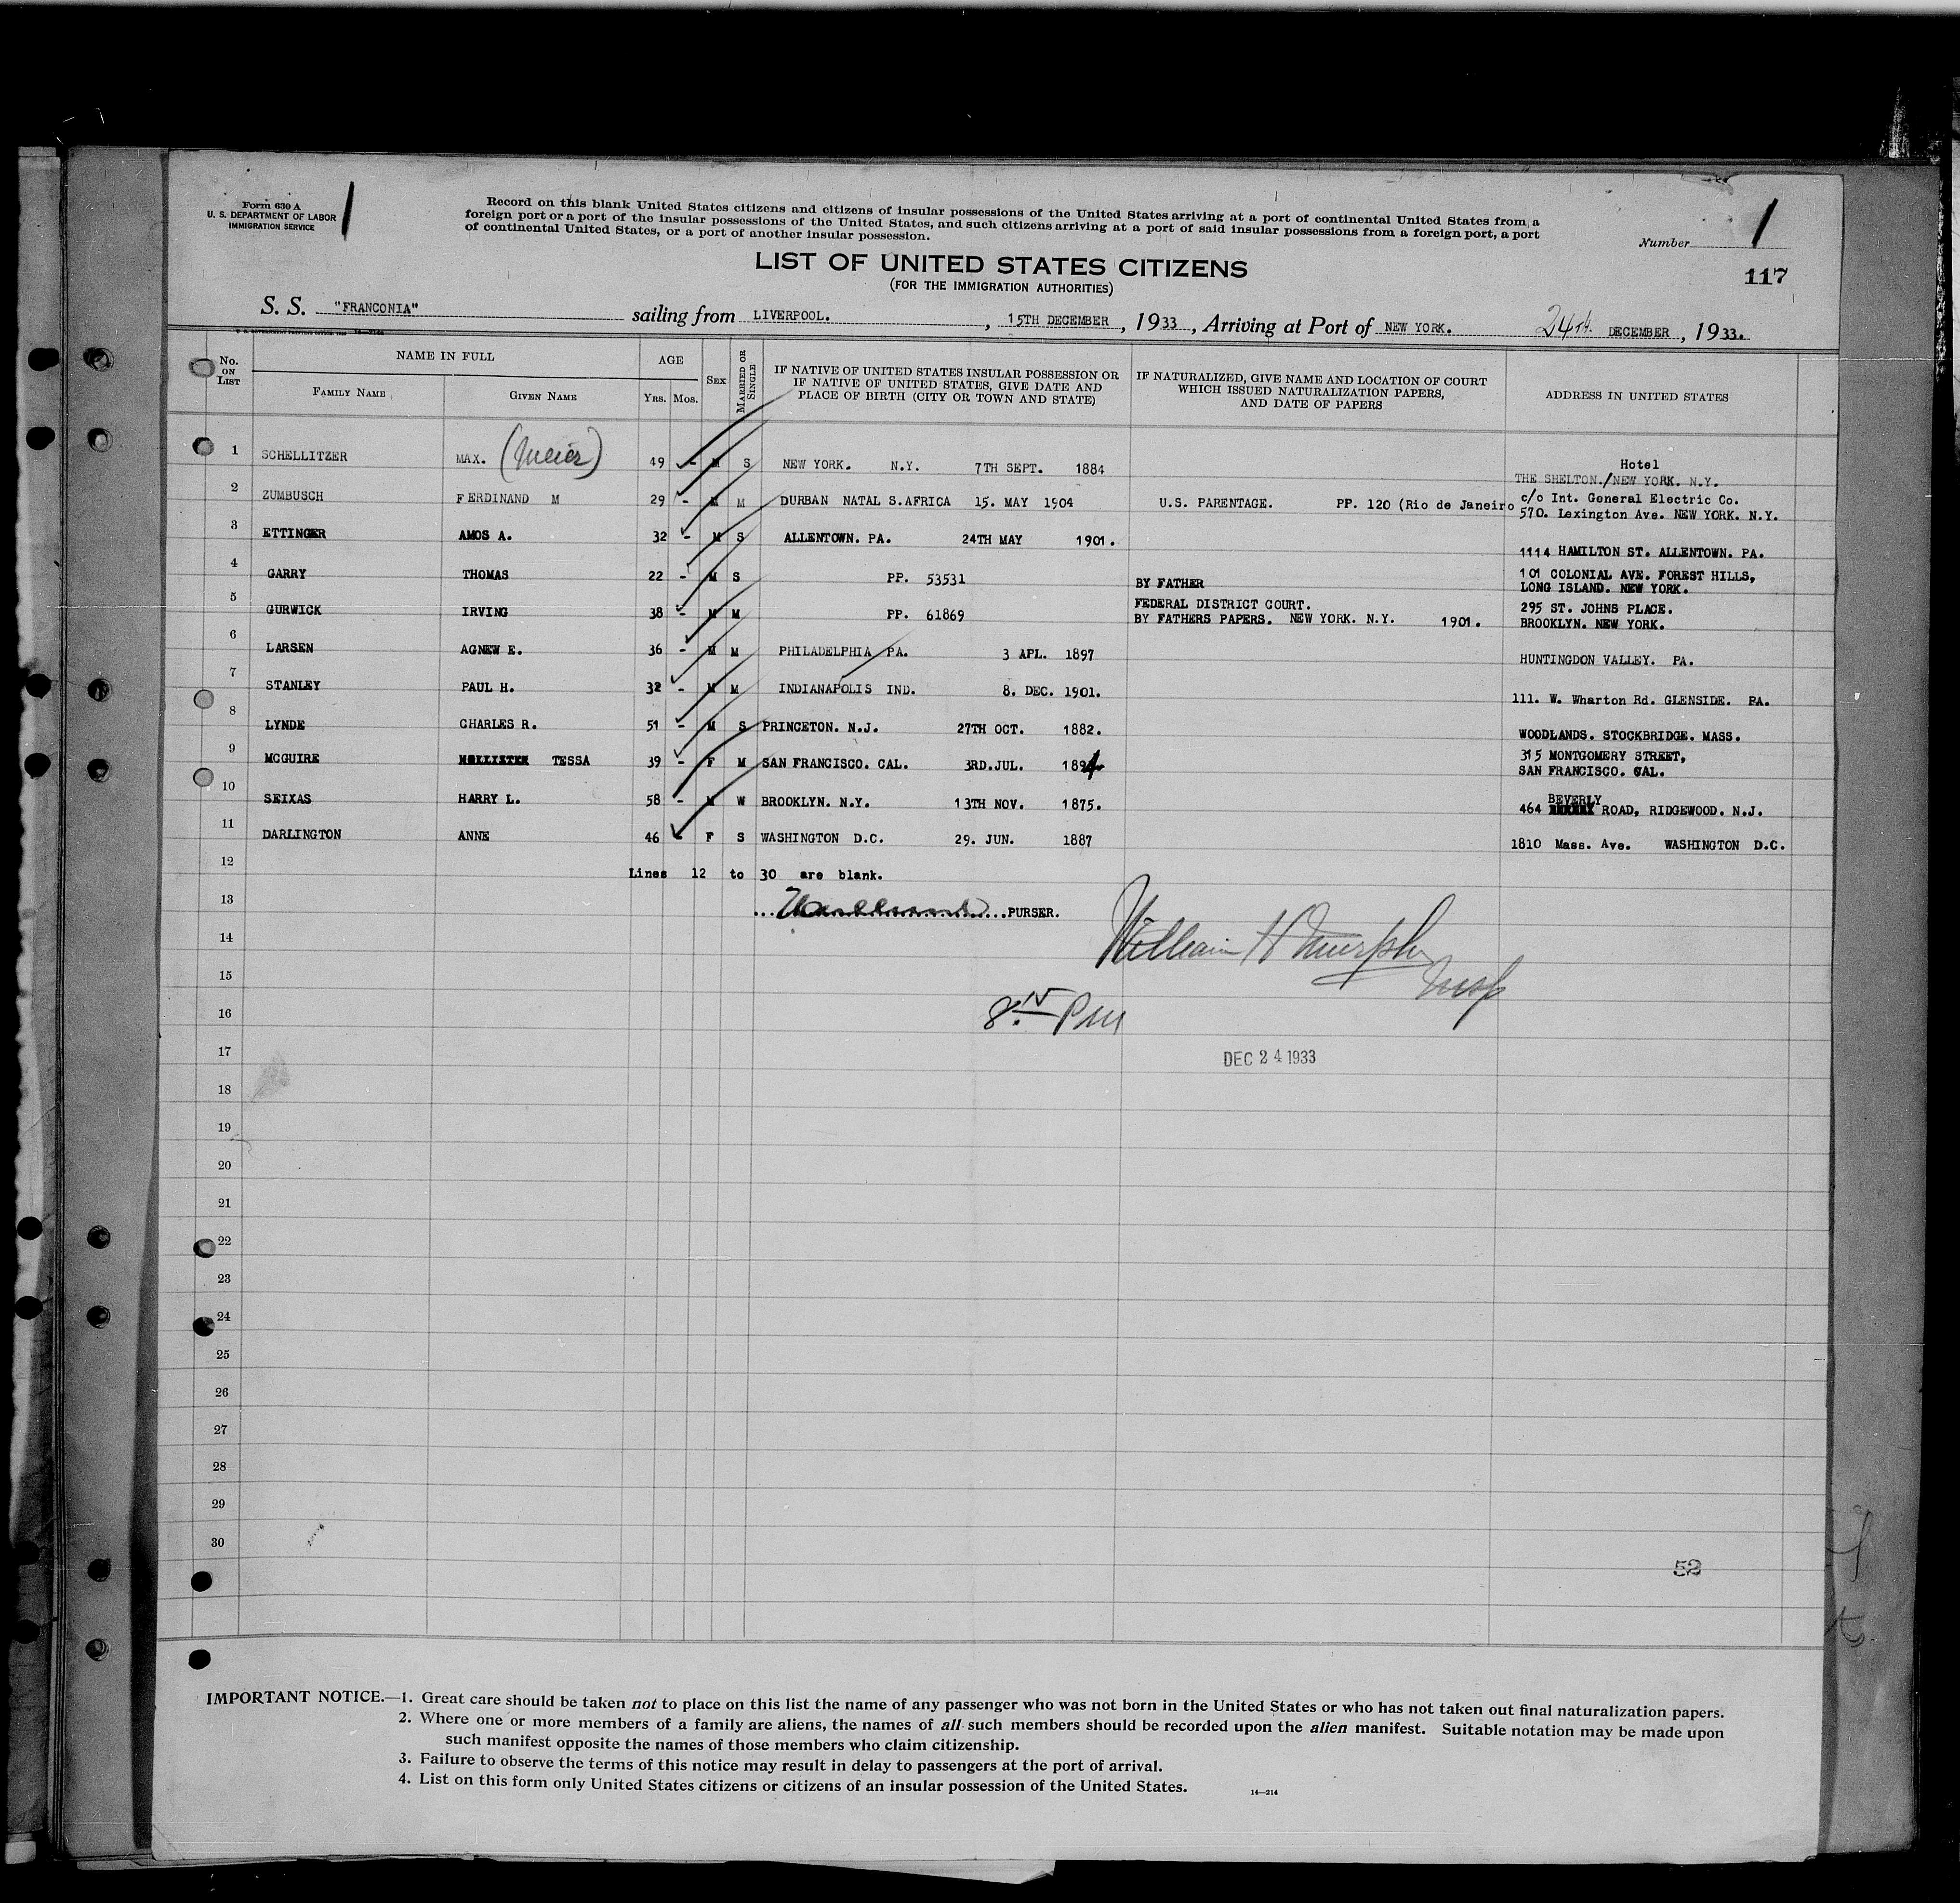 Form 630 A
U. S. DEPARTMENT OF LABOR
IMMIGRATION SERVICE
1
Record on this blank United States citizens and citizens of insular possessions of the United States arriving at a port of continental United States from a
foreign port or a port of the insular possessions of the United States, and such citizens arriving at a port of said insular possessions from a foreign port, a port
of continental United States, or a port of another insular possession.
Number 1
117
LIST OF UNITED STATES CITIZENS
(FOR THE IMMIGRATION AUTHORITIES)
S. S. "FRANCONIA" sailing from LIVERPOOL. , 15TH DECEMBER , 1933 , Arriving at Port of NEW YORK. 24th. DECEMBER , 1933.
No. ON LIST
NAME IN FULL
FAMILY NAME GIVEN NAME
AGE
YRS. MOS.
SEX
MARRIED OR SINGLE
IF NATIVE OF UNITED STATES INSULAR POSSESSION OR
IF NATIVE OF UNITED STATES, GIVE DATE AND
PLACE OF BIRTH (CITY OR TOWN AND STATE)
IF NATURALIZED, GIVE NAME AND LOCATION OF COURT
WHICH ISSUED NATURALIZATION PAPERS,
AND DATE OF PAPERS
ADDRESS IN UNITED STATES
1 SCHELLITZER MAX. (Meier) 49 - M S NEW YORK. N.Y. 7TH SEPT. 1884 Hotel
THE SHELTON./NEW YORK. N.Y.
2 ZUMBUSCH FERDINAND M 29 - M M DURBAN NATAL S.AFRICA 15. MAY 1904 U.S. PARENTAGE. PP. 120 (Rio de Janeiro c/o Int. General Electric Co.
570. Lexington Ave. NEW YORK. N.Y.
3 ETTINGER AMOS A. 32 - M S ALLENTOWN. PA. 24TH MAY 1901. 1114 HAMILTON ST. ALLENTOWN. PA.
4 GARRY THOMAS 22 - M S PP. 53531 BY FATHER 101 COLONIAL AVE. FOREST HILLS,
LONG ISLAND. NEW YORK.
5 GURWICK IRVING 38 - M M PP. 61869 FEDERAL DISTRICT COURT. 295 ST. JOHNS PLACE.
BY FATHERS PAPERS. NEW YORK. N.Y. 1901. BROOKLYN. NEW YORK.
6 LARSEN AGNEW E. 36 - M M PHILADELPHIA PA. 3 APL. 1897 HUNTINGDON VALLEY. PA.
7 STANLEY PAUL H. 32 - M M INDIANAPOLIS IND. 8. DEC. 1901. 111. W. Wharton Rd. GLENSIDE. PA.
8 LYNDE CHARLES R. 51 - M S PRINCETON. N.J. 27TH OCT. 1882. WOODLANDS. STOCKBRIDGE. MASS.
9 MCGUIRE TESSA 39 - F M SAN FRANCISCO. CAL. 3RD.JUL. 1894 315 MONTGOMERY STREET,
SAN FRANCISCO. CAL.
10 SEIXAS HARRY L. 58 - M W BROOKLYN. N.Y. 13TH NOV. 1875. 464 BEVERLY ROAD, RIDGEWOOD. N.J.
11 DARLINGTON ANNE 46 - F S WASHINGTON D.C. 29. JUN. 1887 1810 Mass. Ave. WASHINGTON D.C.
12 Lines 12 to 30 are blank.
13 PURSER.
14 William H Murphy
15 Insp
16 Pm
17 DEC 24 1933
18
19
20
21
22
23
24
25
26
27
28
29
30
52
IMPORTANT NOTICE.—1. Great care should be taken not to place on this list the name of any passenger who was not born in the United States or who has not taken out final naturalization papers.
2. Where one or more members of a family are aliens, the names of all such members should be recorded upon the alien manifest. Suitable notation may be made upon
such manifest opposite the names of those members who claim citizenship.
3. Failure to observe the terms of this notice may result in delay to passengers at the port of arrival.
4. List on this form only United States citizens or citizens of an insular possession of the United States.
14—214